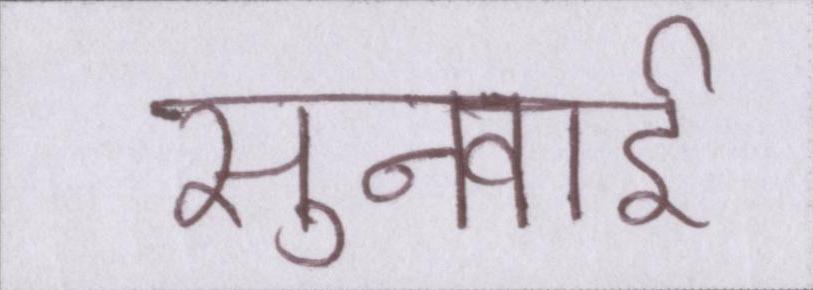 सुनवाई